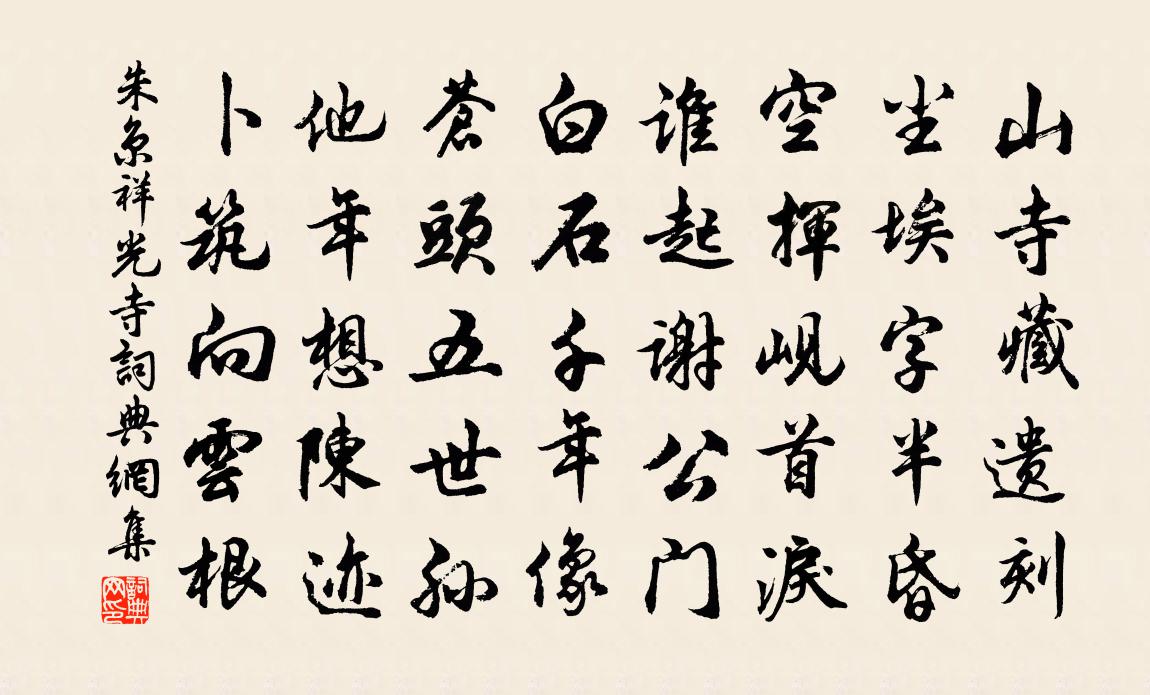 山寺藏遗刻
尘埃字半昏
空揮峴首淚
谁起謝公门
白石千年像
蒼頭五世孙
他年想陳迹
卜筑向雲根
朱京祥光寺詞典網集
詞典网印